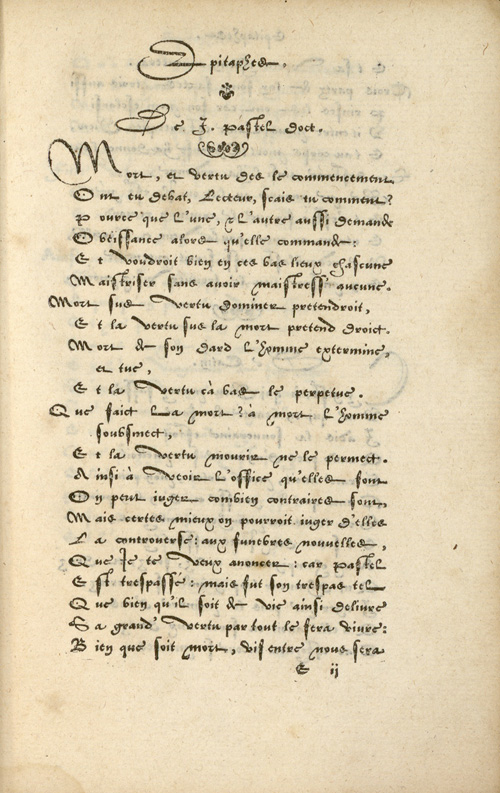 Epitaphes.
De J. Pastel doct.
Mort, et vertu des le commencement
Ont eu debat, Lecteur, scais tu comment?
Pource que l'une, & l'autre aussi demande
Obeissance alors qu'elle commande:
Et voudroit bien en ces bas lieux chascune
Maistriser sans avoir maistresse aucune.
Mort sus vertu dominer pretendroit,
Et la vertu sus la mort pretend droict.
Mort de son dard l'homme extermine,
et tue,
Et la vertu cà bas le perpetue.
Que faict la mort? à mort l'homme
soubsmect,
Et la vertu mourir ne le permect.
Ainsi à veoir l'office qu'elles font
On peut iuger combien contraires sont,
Mais certes mieux on pourroit iuger d'elles
La controverse: aux funebres nouvelles,
Que Je te veux anoncer: car Pastel
Est trespassé: mais fut son trespas tel
Que bien qu'il soit de vie ainsi delivre
Sa grand' vertu par tout le fera vivre:
Bien que soit mort, vif entre nous sera
E ij